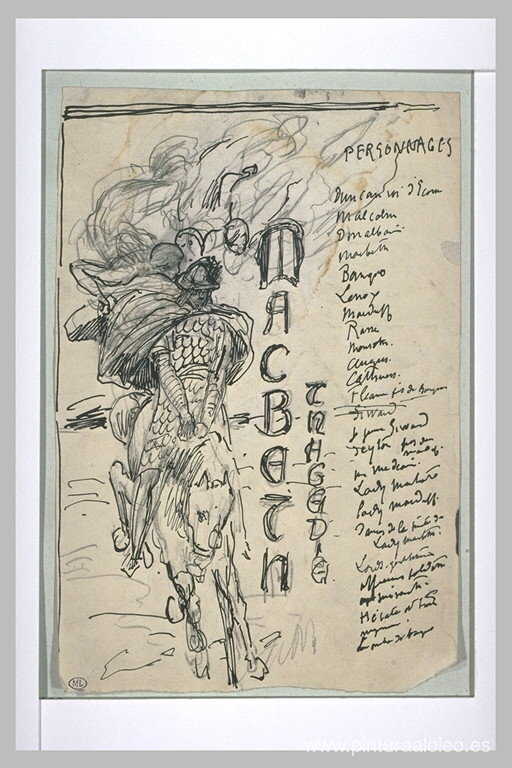 PERSONNAGES
Duncan roi d'Ecosse
Malcolm
Donalbain.
Macbeth
Banquo
Lenox
Macduff
Rosse
Menteth.
Angus.
Cathness.
Fleance fils de Banquo
Siward
Le jeune Siward
Seyton
un médecin.
Lady Macbeth
Lady Macduff.
Dames de la suite de
Lady Macbeth.
Lords
officiers soldats
Hécate et trois
MACBETH
TRAGEDIE
ML
www.pinturaaloleo.es